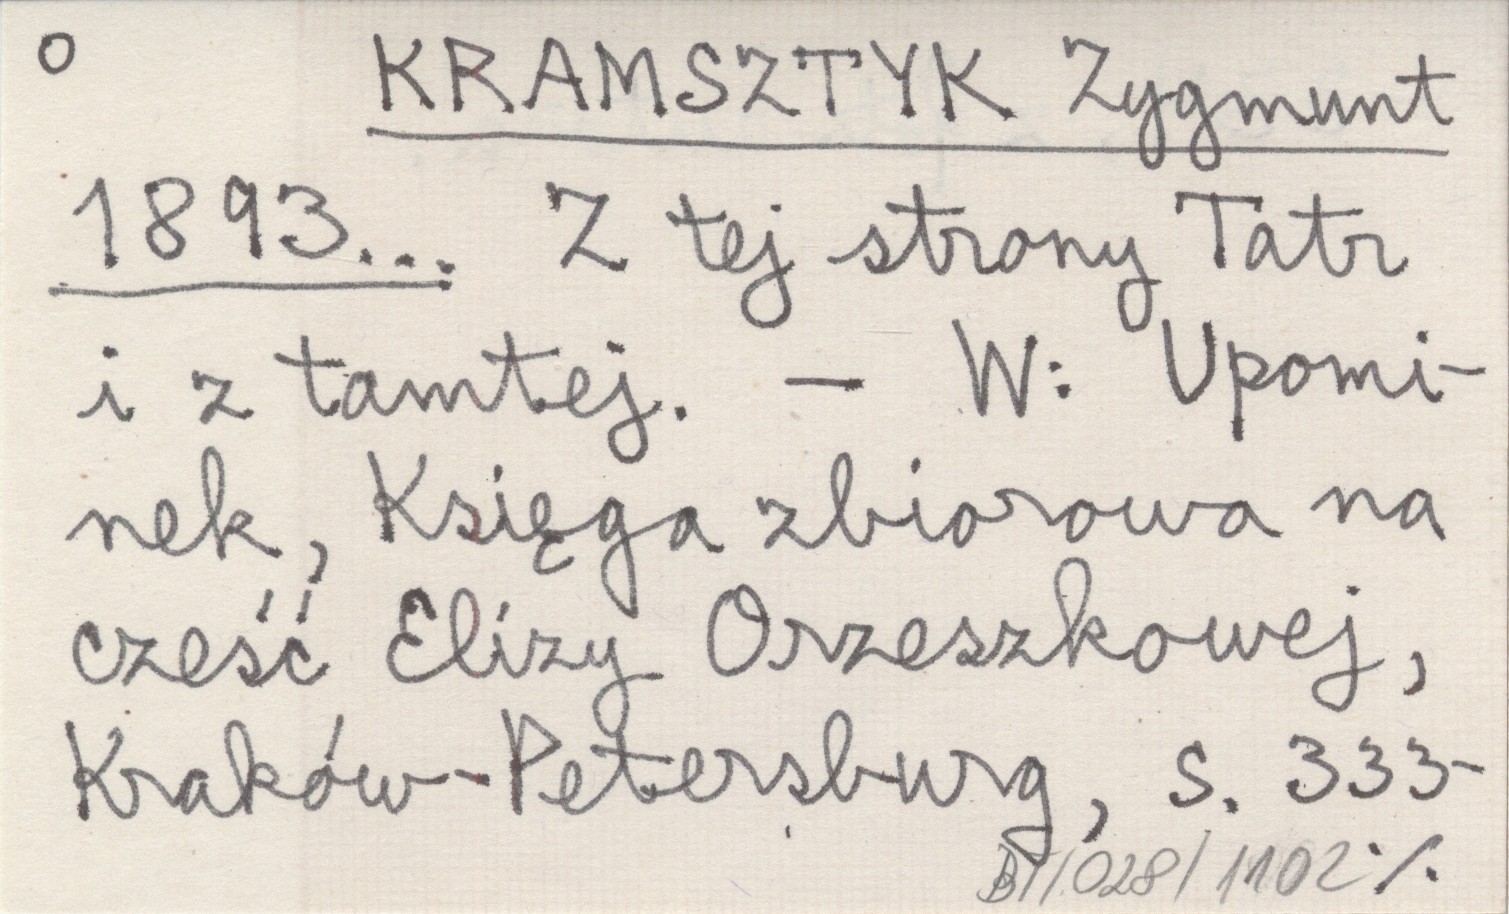 O KRAMSZTYK Zygmunt
1893... Z tej strony Tatr
i z tamtej. — W: Upomi-
nek, Księga zbiorowa na
cześć Elizy Orzeszkowej,
Kraków-Petersburg, s. 333-
BT/028/1102 ·/.